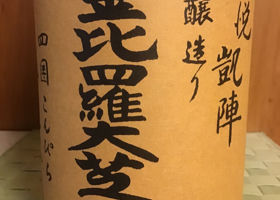 悦 凱陣
醸造り
金比羅大芝
四国こんぴら